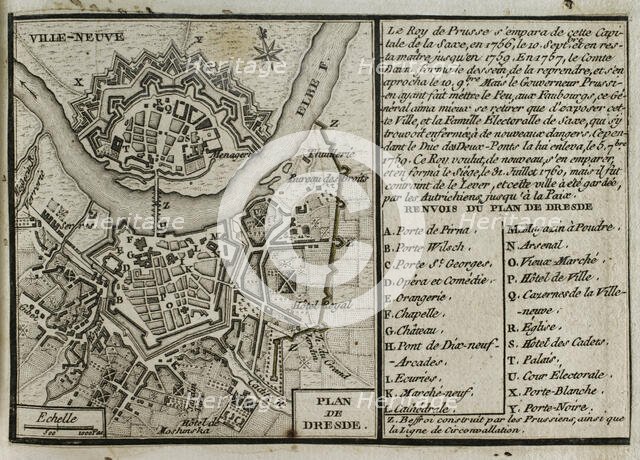 VILLE-NEUVE
ELBE F.
Menagerie
Bureau des Droits
Hôtel Royal
Hôtel de
Moshinska
Echelle
500 1000 Pas
PLAN
DE
DRESDE.
Le Roy de Prusse s'empara de cette Capi-
tale de la Saxe, en 1756, le 10 Sept. et en res-
ta maître jusqu'en 1759. En 1757, le Comte
Daun forma le dessein de la reprendre, et s'en
aprocha le 10. 9bre Mais le Gouverneur Prussi-
en ayant fait mettre le Feu, aux Faubourgs, ce Gé-
néral aima mieux se retirer que d'exposer cet-
te Ville, et la Famille Electorale de Saxe, qui s'y
trouvoit enfermée à de nouveaux dangers. Cepen-
dant le Duc de Deux-Ponts la lui enleva, le 6. 7bre
1759. Ce Roy voulut, de nouveau, s'en emparer,
et en forma le Siège, le 31. Juillet, 1760, mais il fut
contraint de le Lever, et cette ville a été gardée,
par les Autrichiens jusqu'à la Paix.
RENVOIS DU PLAN DE DRESDE
A. Porte de Pirna
B. Porte Wilsch.
C. Porte St. Georges,
D. Opéra et Comédie,
E. Orangerie,
F. Chapelle,
G. Château,
H. Pont de Dix-neuf-
Arcades,
I. Ecuries,
Marché-neuf,
L. Cathédrale,
M. Magazin à Poudre,
N. Arsenal,
O. Vieux-Marché,
P. Hôtel de Ville,
Q. Cazernes de la Ville-
neuve,
R. Eglise,
S. Hôtel des Cadets,
T. Palais,
U. Cour Electorale,
X. Porte-Blanche,
Y. Porte-Noire.
Z. Beffroi construit par les Prussiens, ainsi que
la Ligne de Circonvallation.
Heritage
Images